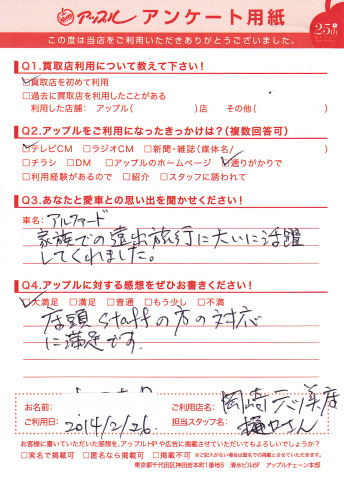 アップル アンケート用紙
25th
この度は当店をご利用いただきありがとうございました。
Q1.買取店利用について教えて下さい！
☑買取店を初めて利用
□過去に買取店を利用したことがある
利用した店舗： アップル( )店 その他( )
Q2.アップルをご利用になったきっかけは？(複数回答可)
☑テレビCM □ラジオCM □新聞・雑誌(媒体名/ )
□チラシ □DM □アップルのホームページ ☑通りがかりで
□利用経験があるので □紹介 □スタッフに誘われて
Q3.あなたと愛車との思い出を聞かせください！
車名： アルファード
家族での遠出旅行に大いに活躍
してくれました。
Q4.アップルに対する感想をぜひお書きください！
☑大満足 □満足 □普通 □もう少し □不満
店頭staffの方の対応
に満足です。
お名前： ご利用店名： 岡崎
ご利用日： 2014/2/26. 担当スタッフ名： 樋口さん
お客様に書いていただいた感想を、アップルHPや広告に掲載させていただいてもよろしいでしょうか？
□実名で掲載可 □匿名なら掲載可 □掲載不可 ※ご記入がない場合は匿名での掲載とさせていただきます。
東京都千代田区神田岩本町1番地5 清水ビル6F アップルチェーン本部